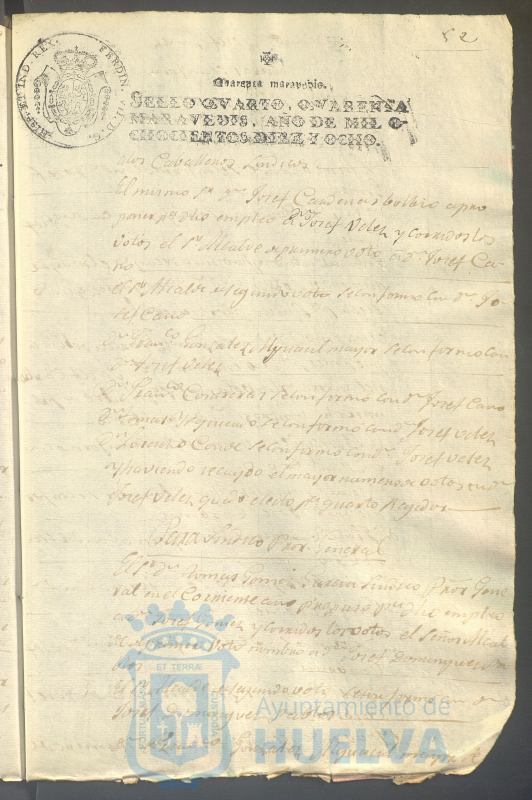 52
HISP. ET IND. REX. FERDIN. VII. D. G.
Quarenta maravedis.
SELLO QVARTO, QVARENTA
MARAVEDIS, AÑO DE MIL O
CHOCIENTOS DIEZ Y OCHO.
Caballeros
El mismo Sr. Dn. Josef Cardenas bolbio a pro
poner pa. dho empleo a Dn. Josef Velez y corridos los
votos el Sr. Alcalde de primero voto a Dn. Josef Ca
no
el Sr. Alcalde de segundo voto se conformo con Dn. Jo
sef Cano
Dn. Franco. Gonzalez Alguacil mayor se conformo con
Dn. Josef Velez
Dn. Franco. Contreras se conformo con Dn. Josef Cano
Dn. Tomas se conformo con Dn. Josef Velez
Dn. Lorenzo se conformo con Dn. Josef Velez
y haviendo recaydo el mayor numero de votos en Dn.
Josef Velez quedo electo pr. quarto Rejidor
Para Sindico Pror. General
El Sr. Dn. Tomas Gomez Sindico Pror. Gene
ral en el Corriente año propuso pa. dho empleo
a Dn. Josef Gomez y corridos los votos el Señor Alcal
de de primer voto nombro a Dn. Josef Dominguez
El Sr. Alcalde de segundo voto se conformo con Dn.
Josef Dominguez
Dn. Gonzalez Alguacil mayor
ET TERRÆ
Ayuntamiento de
HUELVA